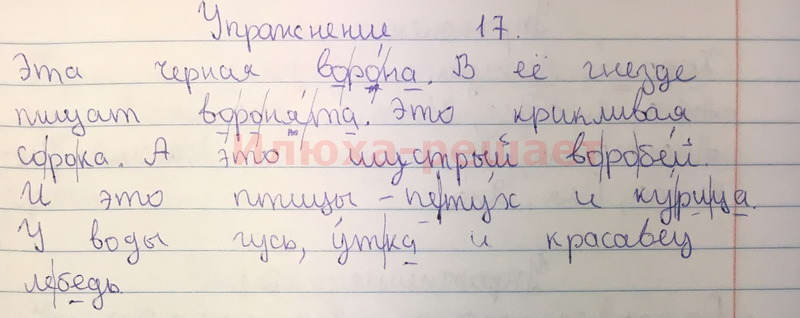 Упражнение 17.
Эта черная ворона. В её гнезде
пищат воронята. Это крикливая
сорока. А это шустрый воробей.
И это птицы - петух и курица.
У воды гусь, утка и красавец
лебедь.
Илюха-решает